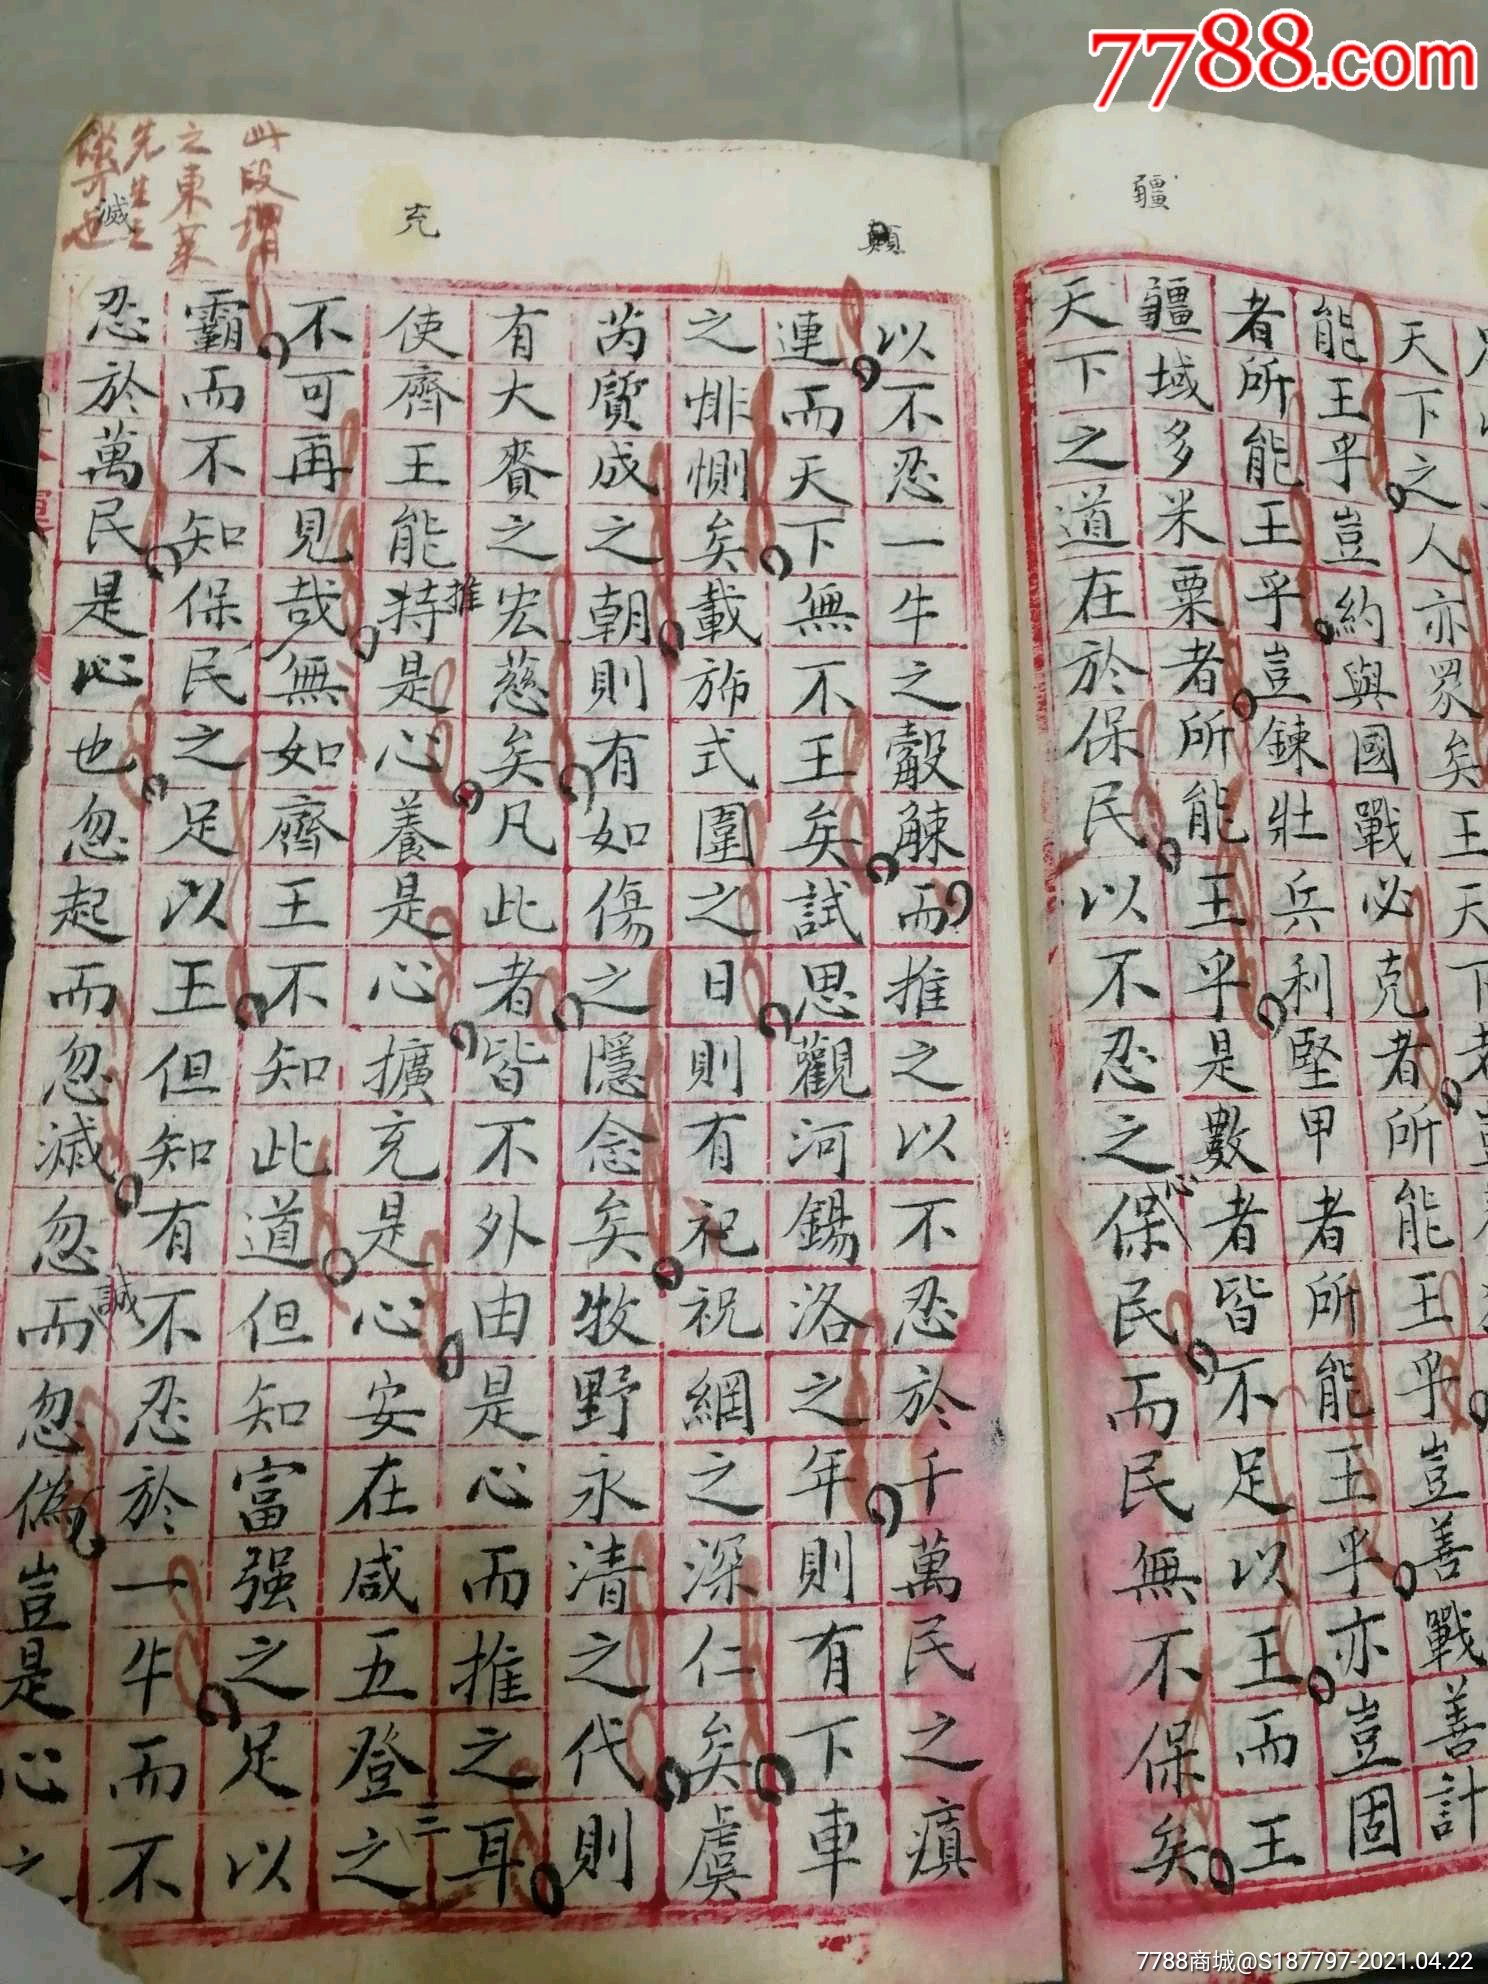 7788.com
疆
天下之人亦眾矣王天下者
能王乎豈約與國戰必克者所能王乎豈善戰善計
者所能王乎豈鍊壯兵利堅甲者所能王乎亦豈固
疆域多米粟者所能王乎是數者皆不足以王而王
天下之道在於保民以不忍之心保民而民無不保矣
顛
充
滅
此段謂
之東萊
先生之
以不忍一牛之觳觫而推之以不忍於千萬民之瘨
連而天下無不王矣試思觀河錫洛之年則有下車
之悱惻矣載旆式圍之日則有祀祝網之深仁矣虞
芮質成之朝則有如傷之隱念矣牧野永清之代則
有大賚之宏慈矣凡此者皆不外由是心而推之耳
推
使齊王能持是心養是心擴充是心安在咸五登之
三
不可再見哉無如齊王不知此道但知富强之足以
霸而不知保民之足以王但知有不忍於一牛而不
誠
忍於萬民是心也忽起而忽滅忽而忽偽豈是心之
7788商城@S187797-2021.04.22